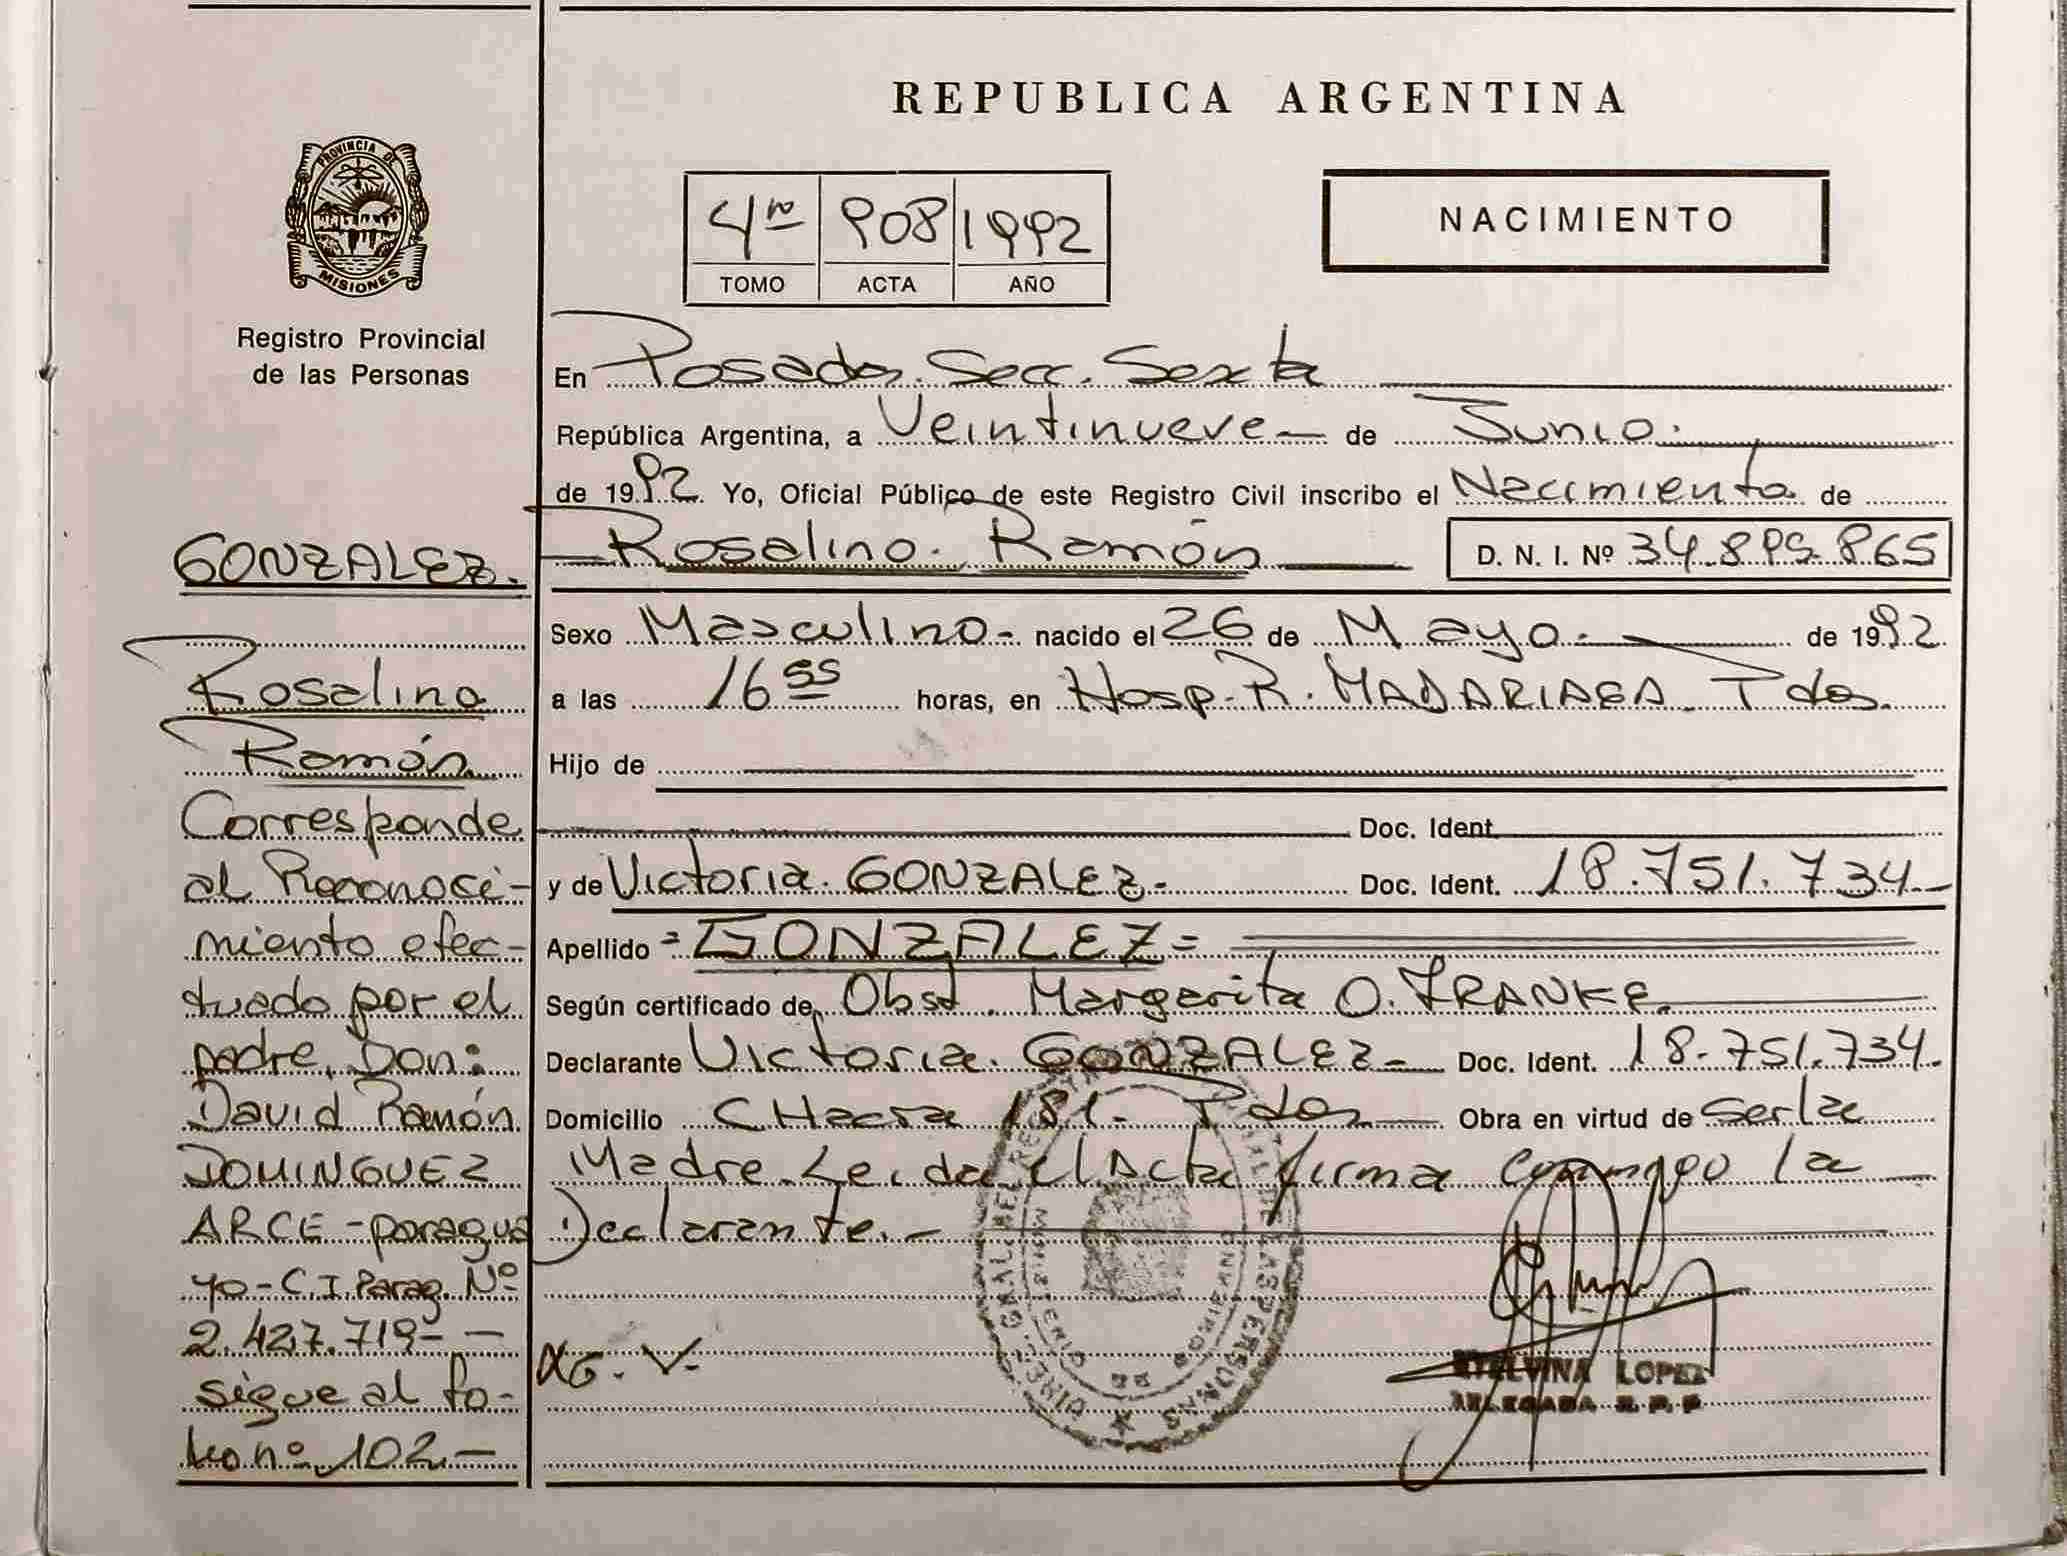 REPUBLICA ARGENTINA
PROVINCIA DE
MISIONES
Registro Provincial
de las Personas
4to 908 1992
TOMO ACTA AÑO
NACIMIENTO
En Posadas. Secc. Sexta
República Argentina, a Veintinueve de Junio.
de 1992. Yo, Oficial Público de este Registro Civil inscribo el Nacimiento de
Rosalino. Ramón D. N. I. Nº 34.895.865
Sexo Masculino- nacido el 26 de Mayo- de 1992.
a las 16 55 horas, en Hosp. R. MADARIAGA. Pdas.
Hijo de
Doc. Ident.
y de Victoria. GONZALEZ.- Doc. Ident. 18.751.734-
Apellido =GONZALEZ=
Según certificado de, Obst. Margarita O. FRANKE.
Declarante Victoria. GONZALEZ- Doc. Ident. 18.751.734.
Domicilio CHacra 181. Pdas Obra en virtud de Ser la
Madre. Leida el Acta firma conmigo la
Declarante.-
STELVINA LOPEZ
DELEGADA R. P. P
GONZALEZ.
Rosalino
Ramón
Corresponde
al Reconoci-
miento efec-
tuado por el
padre, Don:
David Ramón
DOMINGUEZ
ARCE -paragua
yo- C.I. Parag. Nº
2.427.719- -
sigue al fo-
lio nº 102.-